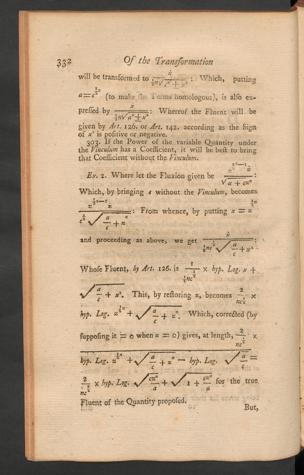 332 Of the Transformation
will be transformed to ẋ / ½n√(x² + x²) : Which, putting
a = x^½n (to make the Terms homologous), is also ex-
pressed by ẋ / ½n√(a² + x²) : Whereof the Fluent will be
given by Art. 126. or Art. 142. according as the Sign
of x² is positive or negative.
303. If the Power of the variable Quantity under
the Vinculum has a Coefficient, it will be best to bring
that Coefficient without the Vinculum.
Ex. 2. Where let the Fluxion given be / √(a + czⁿ) :
Which, by bringing c without the Vinculum, becomes
/ c^½ √(a/c + zⁿ) : From whence, by putting x = z^½n
and proceeding as above, we get ẋ / ½nc^½ √(a/c + x²) :
Whose Fluent, by Art. 126. is 1 / ½nc^½ × hyp. Log. x +
√(a/c + x². This, by restoring z, becomes 2 / nc^½ ×
hyp. Log. z^½n + √(a/c + zⁿ. Which, corrected (by
supposing it = 0 when z = 0) gives, at length, 2 / nc^½ ×
hyp. Log. z^½n + √(a/c + zⁿ − hyp. Log. √(a/c =
2 / nc^½ × hyp. Log. √(czⁿ/a + √(1 + czⁿ/a for the true
Fluent of the Quantity proposed.
But,